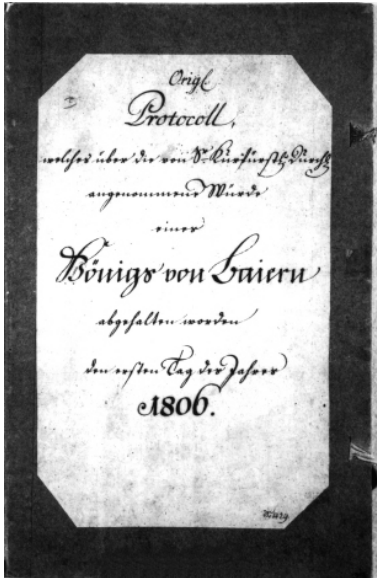 Origl.
Protocoll,
welches über die von Sr. Kurfürstl. Durchl.
angenommene Würde
eines
Königs von Baiern
abgehalten worden
den ersten Tag des Jahres
1806.